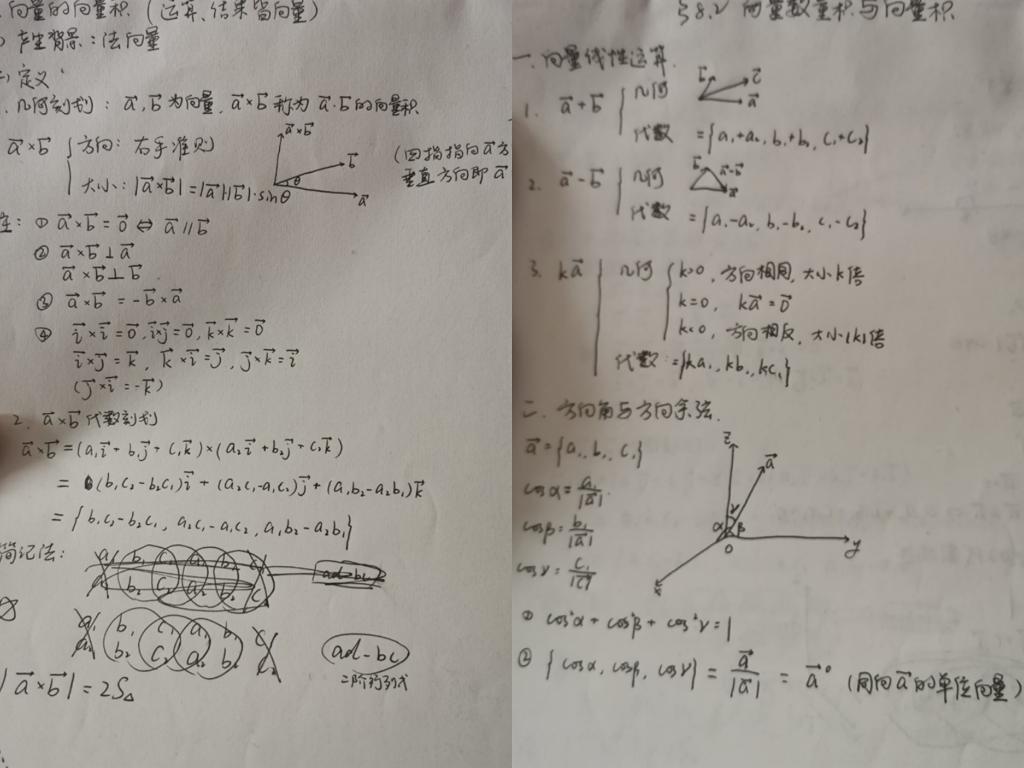 向量的向量积（运算、结果皆向量）
产生背景：法向量
定义
几何刻划：a⃗, b⃗ 为向量, a⃗×b⃗ 称为 a⃗·b⃗ 的向量积
a⃗×b⃗ { 方向：右手准则
大小：|a⃗×b⃗| = |a⃗||b⃗|·sinθ
a⃗×b⃗
b⃗
θ
a⃗
(四指指向a⃗方
垂直方向即a⃗
注：① a⃗×b⃗ = 0⃗ ⇔ a⃗∥b⃗
② a⃗×b⃗⊥a⃗
a⃗×b⃗⊥b⃗
③ a⃗×b⃗ = -b⃗×a⃗
④ i⃗×i⃗ = 0⃗, j⃗×j⃗ = 0⃗, k⃗×k⃗ = 0⃗
i⃗×j⃗ = k⃗, k⃗×i⃗ = j⃗, j⃗×k⃗ = i⃗
(j⃗×i⃗ = -k⃗)
2. a⃗×b⃗ 代数刻划
a⃗×b⃗ = (a₁i⃗ + b₁j⃗ + c₁k⃗)×(a₂i⃗ + b₂j⃗ + c₂k⃗)
= (b₁c₂-b₂c₁)i⃗ + (a₂c₁-a₁c₂)j⃗ + (a₁b₂-a₂b₁)k⃗
= {b₁c₂-b₂c₁, a₂c₁-a₁c₂, a₁b₂-a₂b₁}
简记法：
a₁ b₁ c₁ a₁ b₁ c₁
a₂ b₂ c₂ a₂ b₂ c₂
ad-bc
二阶行列式
|a⃗×b⃗| = 2S△
§8.2 向量数量积与向量积
一. 向量线性运算.
1. a⃗+b⃗ { 几何
b⃗ c⃗ a⃗
代数 = {a₁+a₂, b₁+b₂, c₁+c₂}
2. a⃗-b⃗ { 几何
b⃗ a⃗-b⃗ a⃗
代数 = {a₁-a₂, b₁-b₂, c₁-c₂}
3. ka⃗ { 几何 { k>0, 方向相同, 大小k倍
k=0, ka⃗=0⃗
k<0, 方向相反, 大小|k|倍
代数：={ka₁, kb₁, kc₁}
二. 方向角与方向余弦.
a⃗ = {a₁, b₁, c₁}
cosα = a₁/|a⃗|
cosβ = b₁/|a⃗|
cosγ = c₁/|a⃗|
z
a⃗
α γ β
O
y
x
① cos²α + cos²β + cos²γ = 1
② {cosα, cosβ, cosγ} = a⃗/|a⃗| = a⃗° (同向a⃗的单位向量)